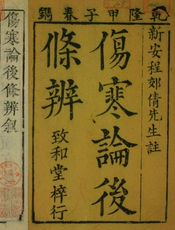 乾隆甲子春鐫
新安程郊倩先生註
傷寒論後
條辨
致和堂梓行
傷寒論後條辨叙